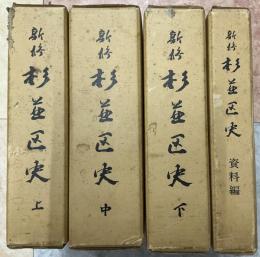 新修
杉並区史
上
新修
杉並区史
中
新修
杉並区史
下
新修
杉並区史
資料編